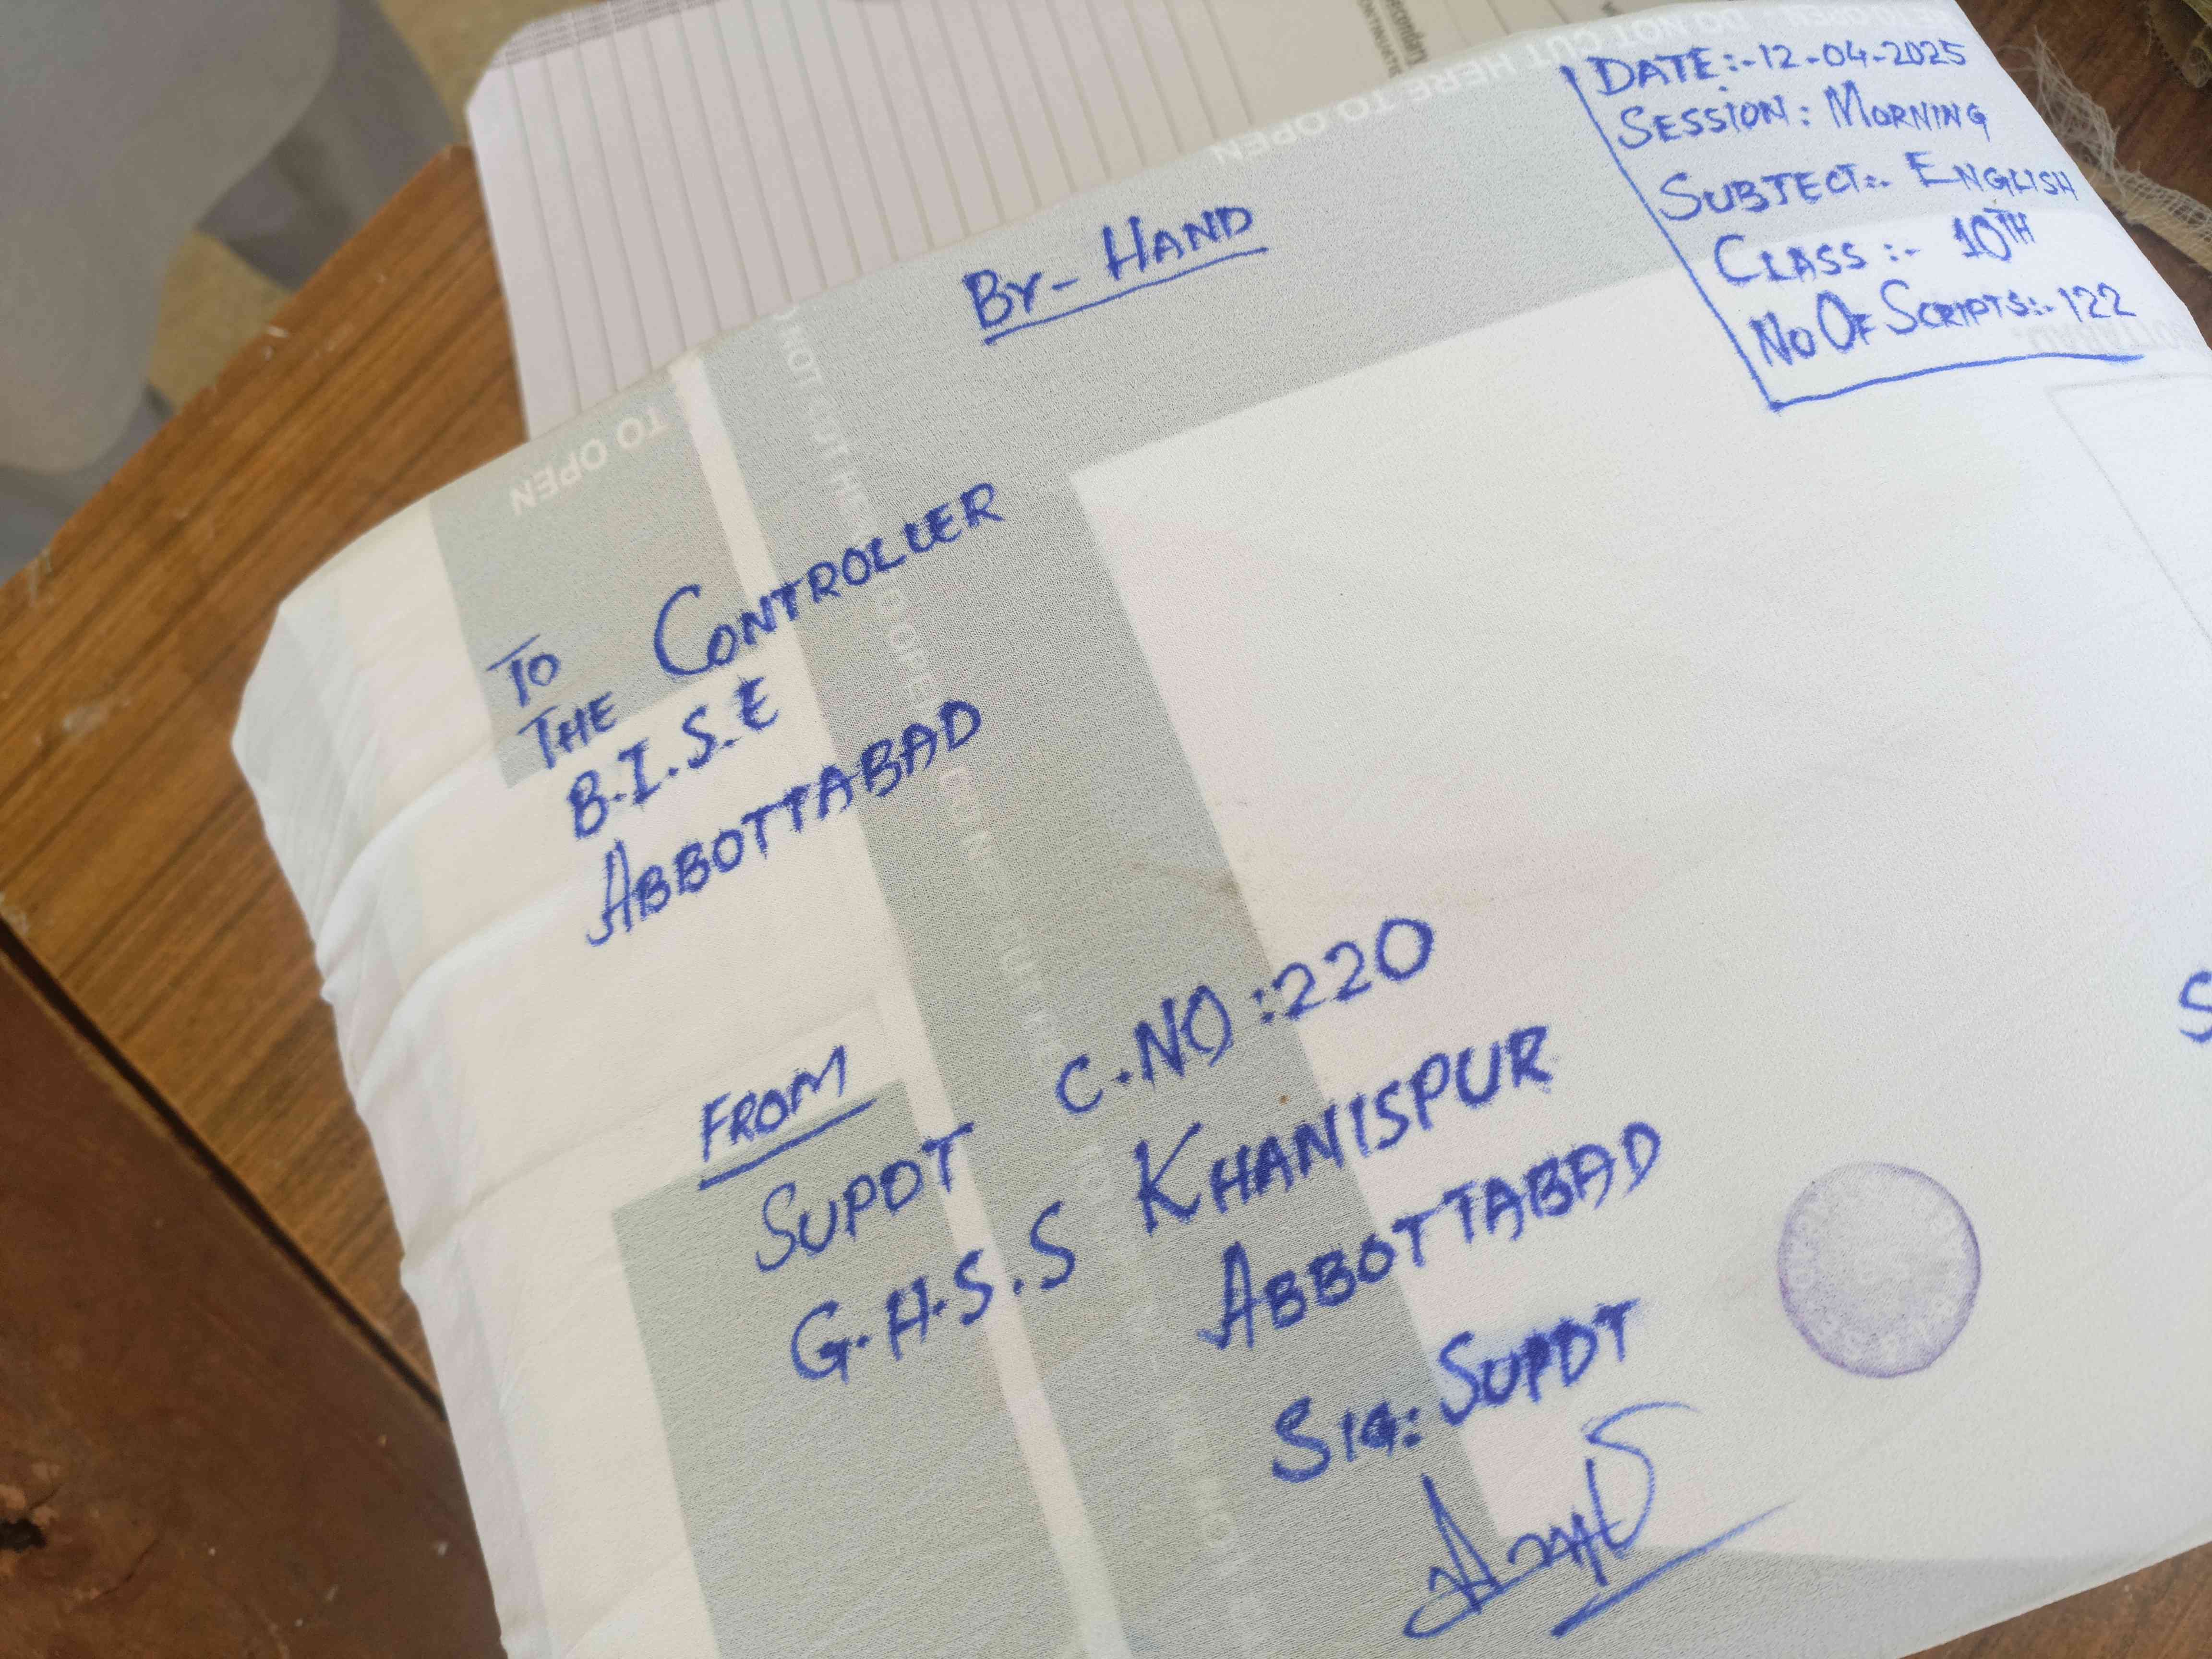 DATE:-12-04-2025
SESSION: MORNING
SUBJECT:- ENGLISH
CLASS:- 10TH
NO OF SCRIPTS:-122
BY-HAND
TO OPEN
HERE TO OPEN DO NOT CUT
TO OPEN
TO
THE CONTROLLER
B.I.S.E
ABBOTTABAD
FROM
SUPDT C.NO:220
G.H.S.S KHANISPUR
ABBOTTABAD
SIG: SUPDT